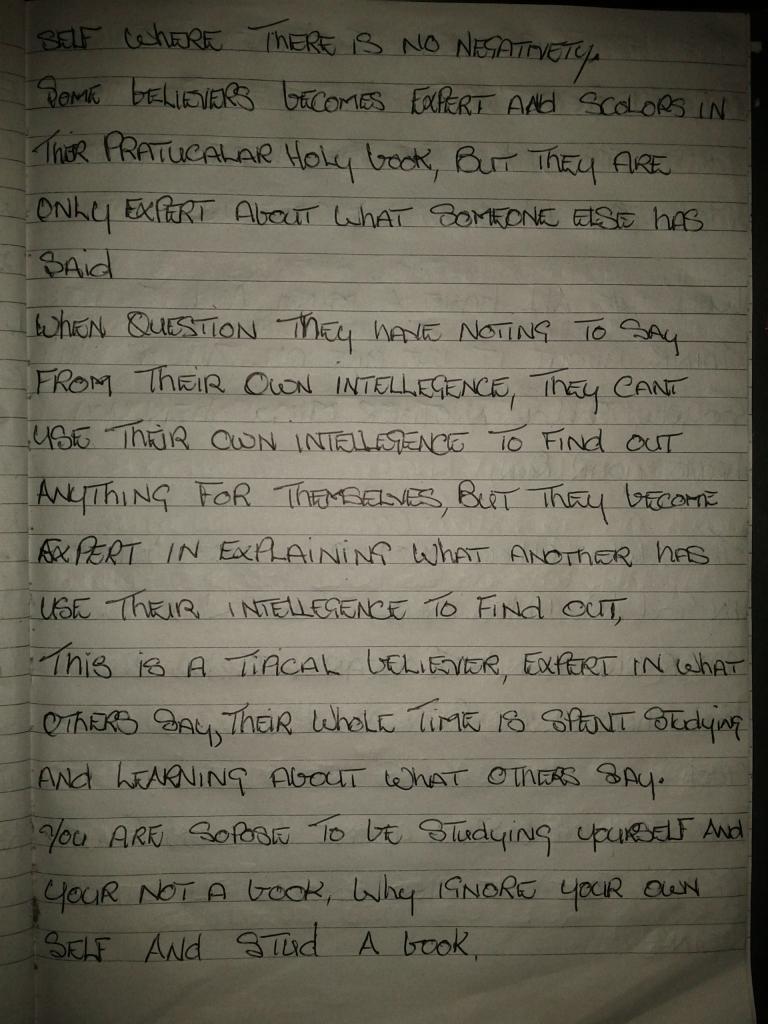 SELF WHERE THERE IS NO NEGATIVETY.
SOME BELIEVERS BECOMES EXPERT AND SCOLORS IN
THER PRATUCALAR HOLY BOOK, BUT THEY ARE
ONLY EXPERT ABOUT WHAT SOMEONE ELSE HAS
SAID
WHEN QUESTION THEY HAVE NOTING TO SAY
FROM THEIR OWN INTELLEGENCE, THEY CANT
USE THEIR OWN INTELLEGENCE TO FIND OUT
ANYTHING FOR THEMSELVES, BUT THEY BECOME
EXPERT IN EXPLAINING WHAT ANOTHER HAS
USE THEIR INTELLEGENCE TO FIND OUT,
THIS IS A TIPICAL BELIEVER, EXPERT IN WHAT
OTHERS SAY, THEIR WHOLE TIME IS SPENT STUDYING
AND LEARNING ABOUT WHAT OTHERS SAY.
YOU ARE SOPOSE TO BE STUDYING YOURSELF AND
YOUR NOT A BOOK, WHY IGNORE YOUR OWN
SELF AND STUD A BOOK,